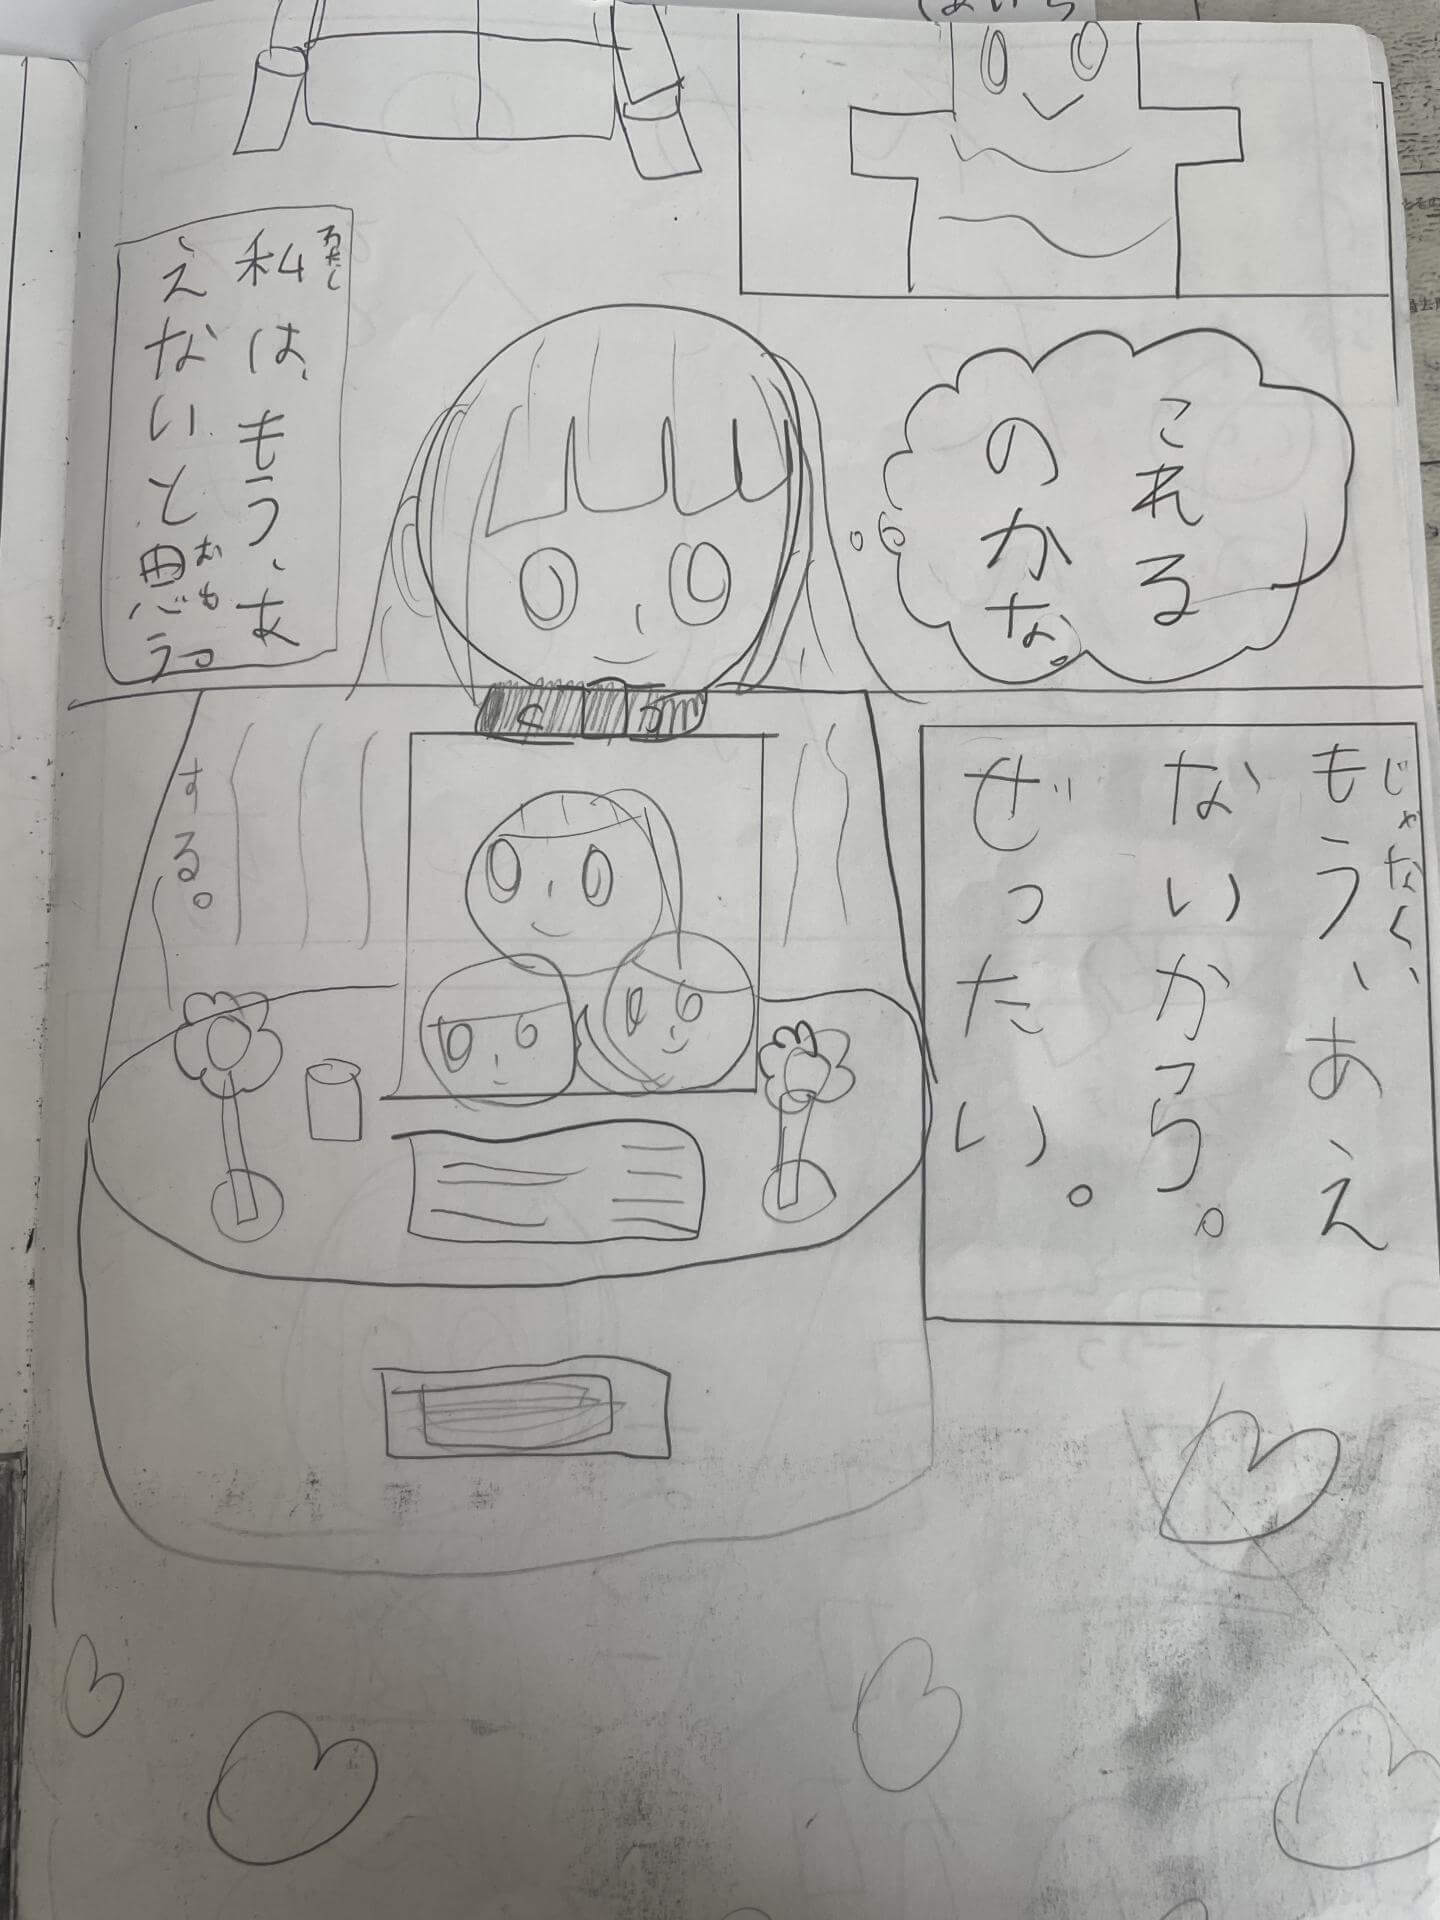 これる
のかな。
私は、もう、あ
わたし
えないと思う。
おも
じゃなく、
もう、あえ
ないから。
ぜったい。
する。